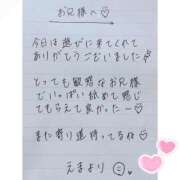 お兄様へ♡
今日は遊びに来てくれて
ありがとうございました
とっても敏感なお兄様
でいっぱい舐めて感じ
てもらえて良かったー♡
また寄り道待ってるね♡
えまより